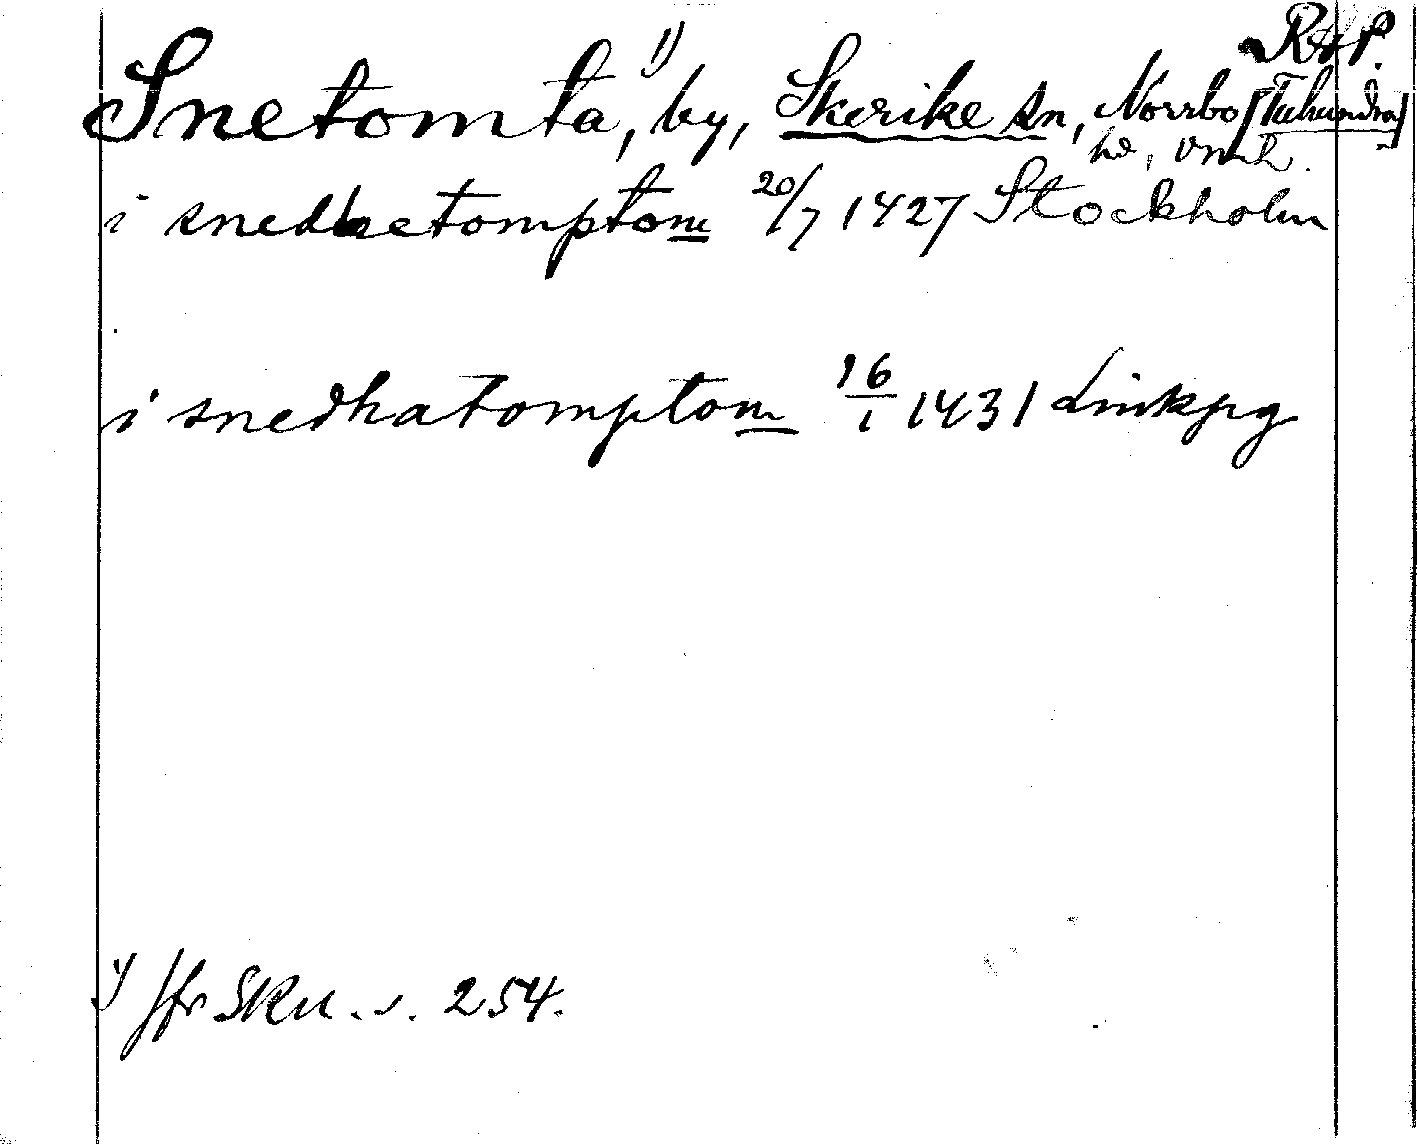 RAP.
Snetomta, 1) by, Skerike sn, Norrbo [Tuhundra]
hd, Vml.
i snedhetomptom 20/7 1427 Stockholm
i snedhatomptom 16/1 1431 Linkpg
1) Jfr SRU. s. 254.